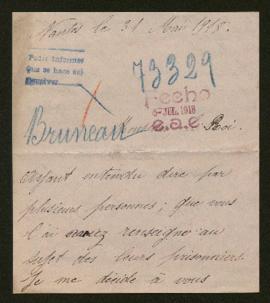 Nantes le 31 Mai 1918.
Pedir informes
que se hace sa
73329
Fecho
6-JUL. 1918
e.a.e.
Bruneau
Roi.
Ayant entendu dire par
plusieurs personnes; que vous
l'ai avez renseigné au
sujet des leurs prisonniers.
Je me décide à vous